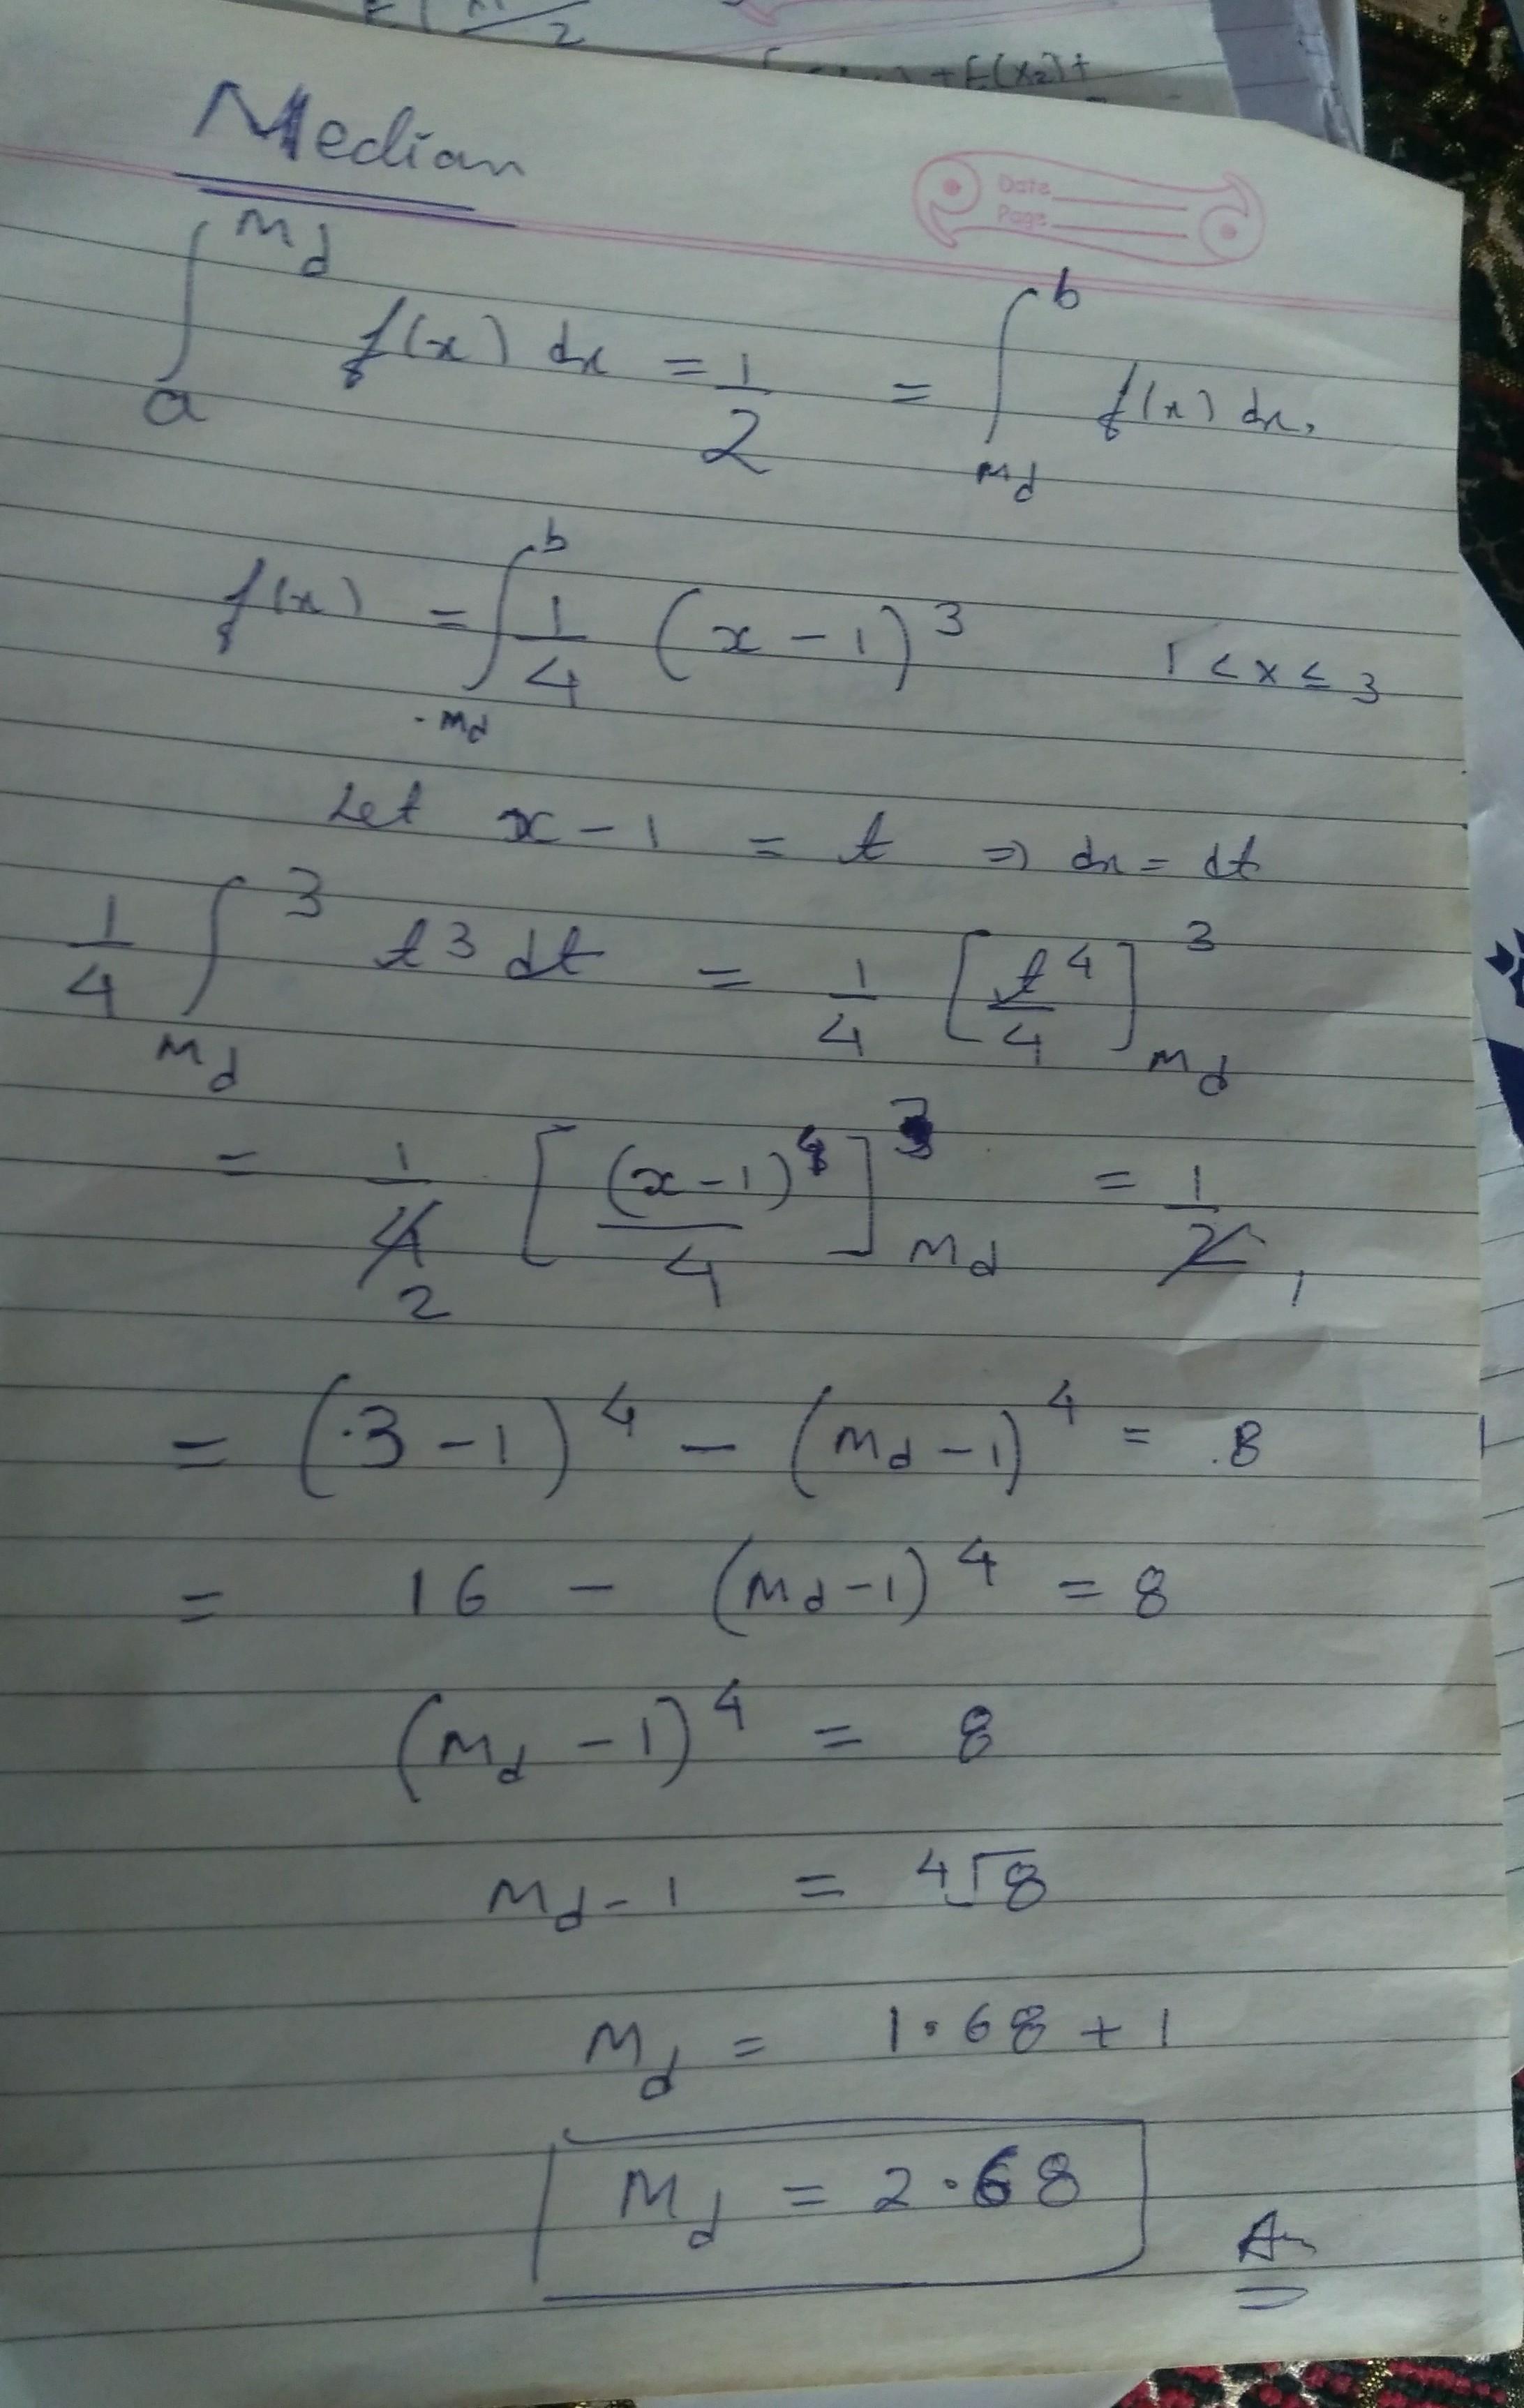 +E(x₂)+
Median
Date
Page
∫ₐ^Md f(x) dx = 1/2 = ∫_Md^b f(x) dx,
f(x) = ∫_Md^b 1/4 (x - 1)³ 1 < x ≤ 3
Let x - 1 = t ⇒ dx = dt
1/4 ∫_Md^3 t³ dt = 1/4 [t⁴/4]_Md^3
= 1/4 2 [(x - 1)⁴/4]_Md^3 = 1/2 1
= (3 - 1)⁴ - (Md - 1)⁴ = 8
= 16 - (Md - 1)⁴ = 8
(Md - 1)⁴ = 8
Md - 1 = ⁴√8
Md = 1.68 + 1
Md = 2.68